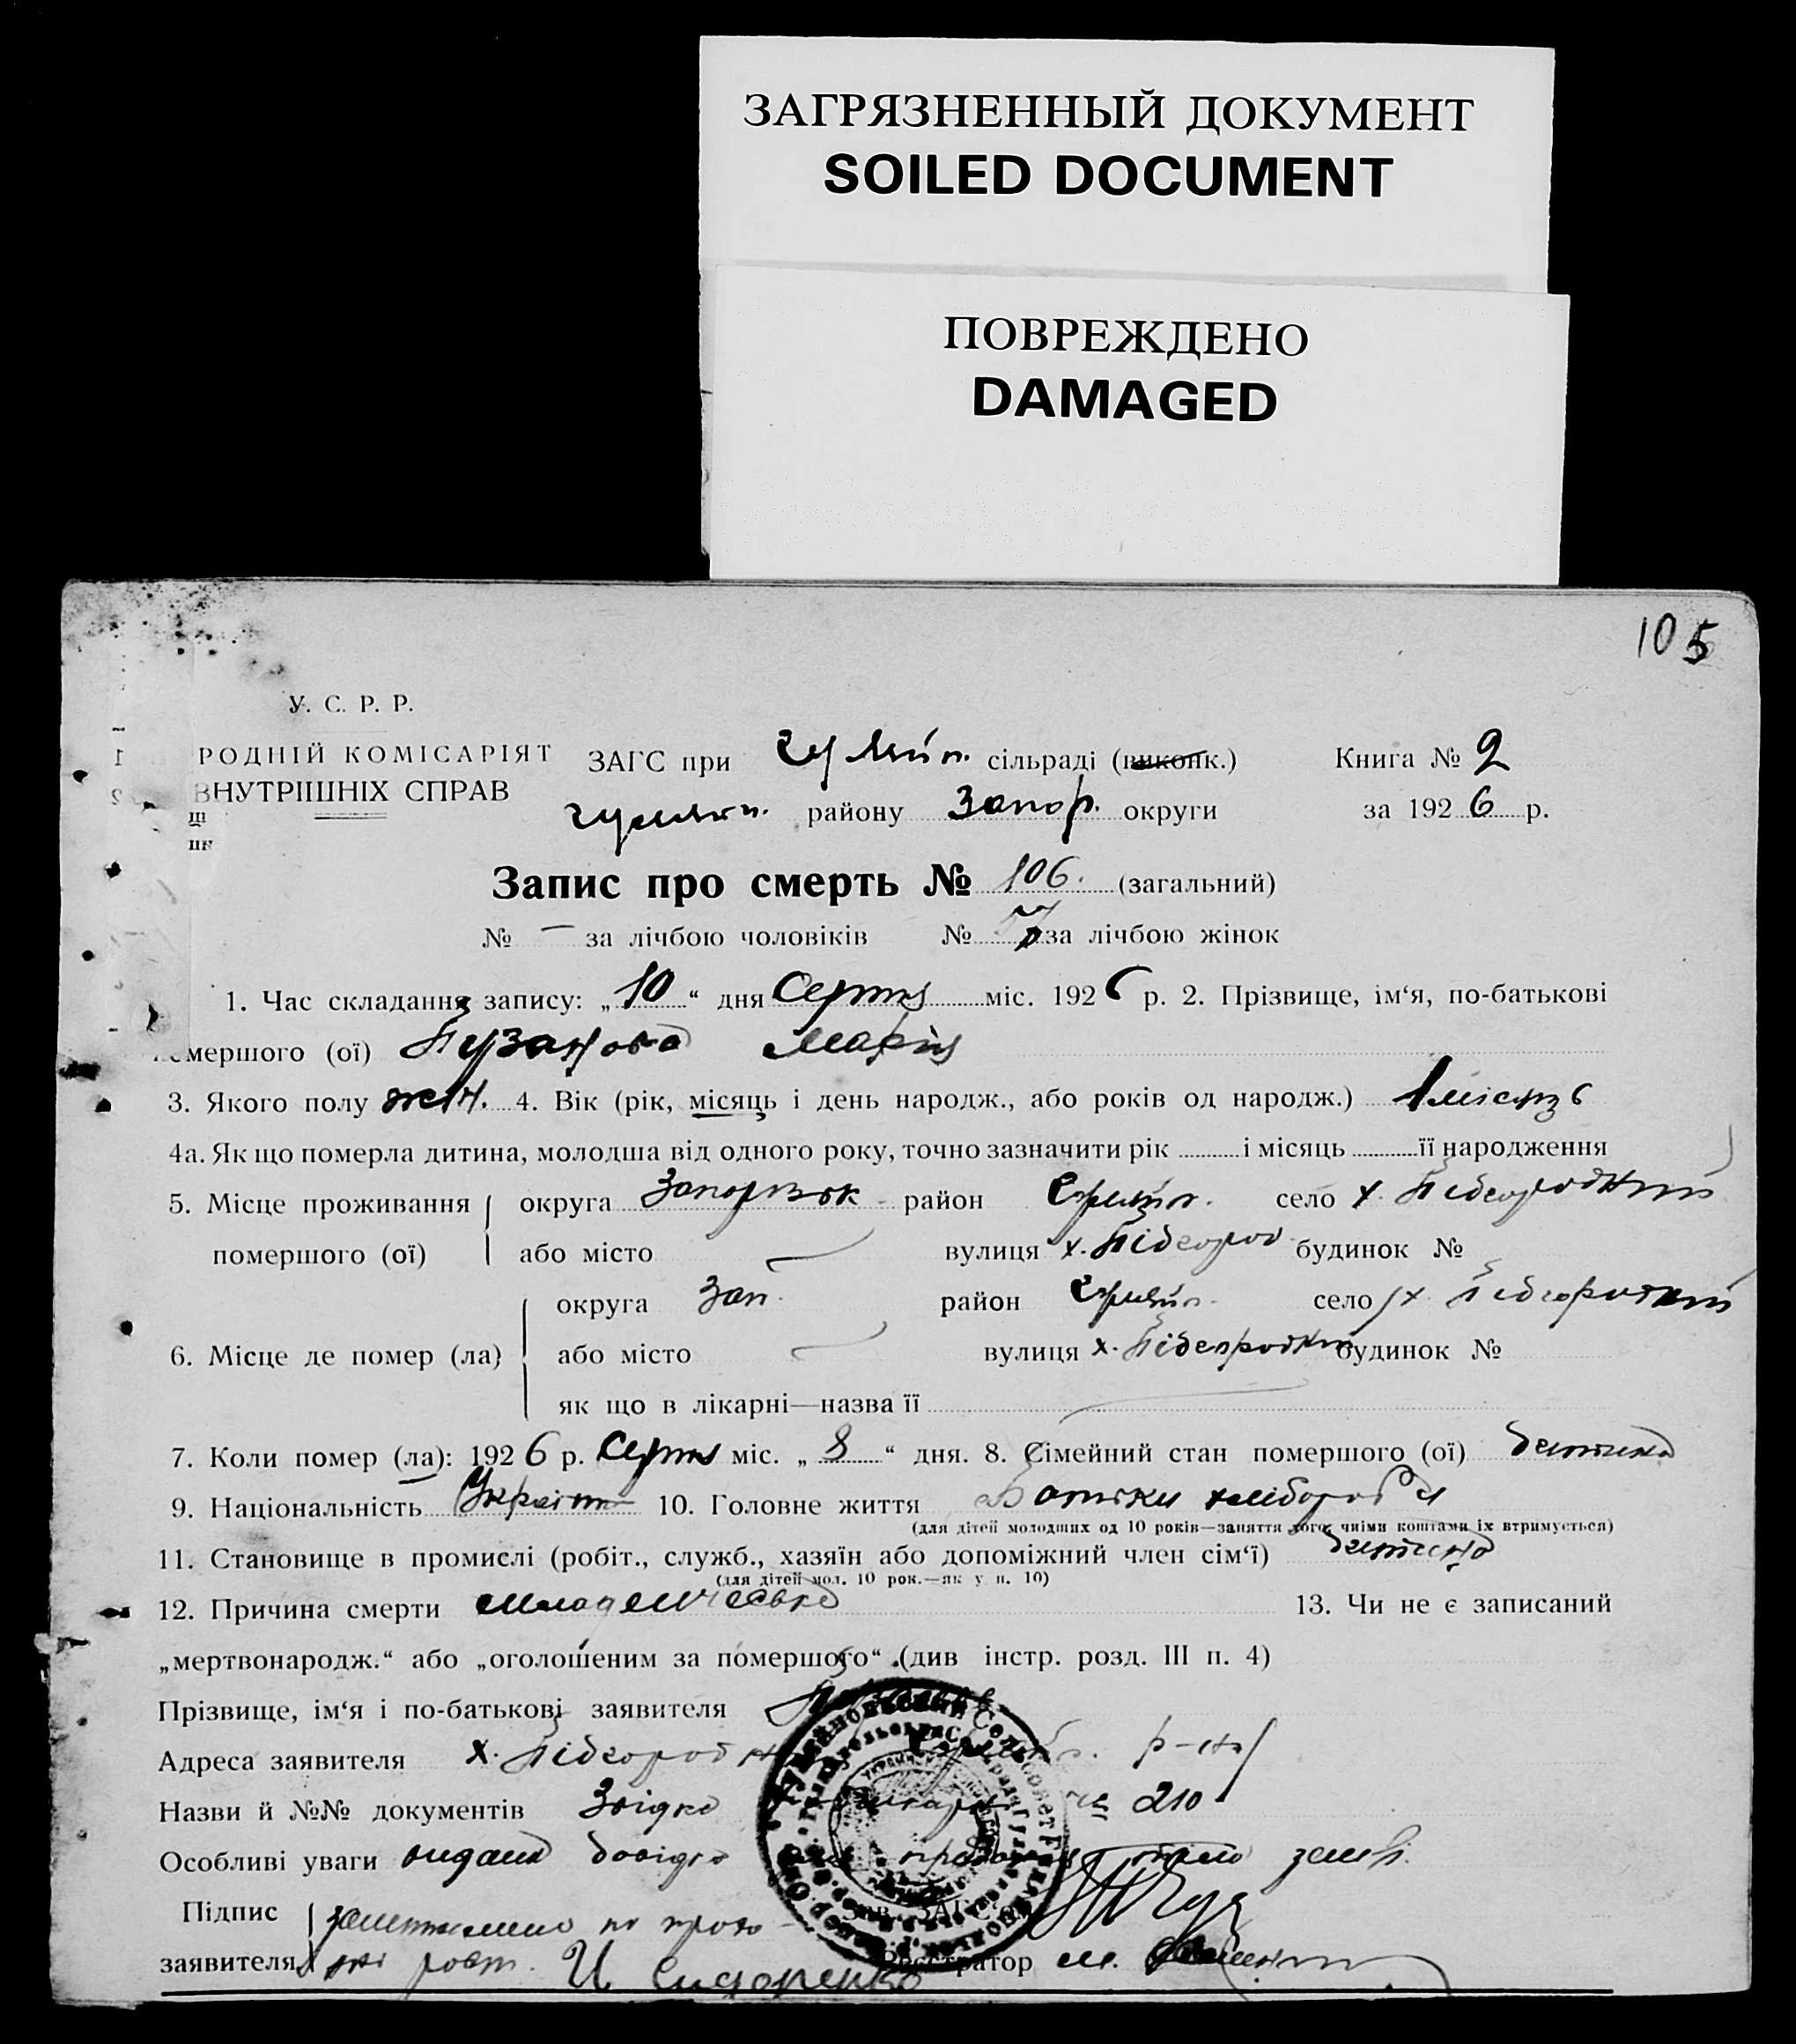 ЗАГРЯЗНЕННЫЙ ДОКУМЕНТ
SOILED DOCUMENT
ПОВРЕЖДЕНО
DAMAGED
105
У. С. Р. Р.
РОДНІЙ КОМІСАРІЯТ
ВНУТРІШНІХ СПРАВ
ЗАГС при Гуляйп. сільраді (виконк.) Книга № 2
гуляйп. району Запор. округи за 1926 р.
Запис про смерть № 106. (загальний)
№ — за лічбою чоловіків № за лічбою жінок
1. Час складання запису: „10“ дня Серпня міс. 1926 р. 2. Прізвище, ім‘я, по-батькові
омершого (ої) Пузанова Марія
3. Якого полу жін. 4. Вік (рік, місяць і день народж., або років од народж.) 1 місяць
4а. Як що померла дитина, молодша від одного року, точно зазначити рік і місяць її народження
5. Місце проживання округа Запорізьк район Гуляйп. село х. Підгородний
помершого (ої) або місто — вулиця х. Підгород будинок №
округа Зап. район Гуляйп. село х. Підгородний
6. Місце де помер (ла) або місто — вулиця х. Підгородний будинок №
як що в лікарні—назва її —
7. Коли помер (ла): 1926 р. Серпня міс. „8“ дня. 8. Сімейний стан помершого (ої) дитина
9. Національність Україн 10. Головне життя Батьки хлібороби
(для дітей молодших од 10 років—заняття того, чиїми коштами їх втримується)
11. Становище в промислі (робіт., служб., хазяїн або допоміжний член сім‘ї) дитина
(для дітей мол. 10 рок.—як у п. 10)
12. Причина смерти младенческа 13. Чи не є записаний
„мертвонародж.“ або „оголошеним за помершого“ (див інстр. розд. III п. 4)
Прізвище, ім‘я і по-батькові заявителя
Адреса заявителя х. Підгородн р-ну
Назви й №№ документів 210
Особливі уваги видана довідка про тіло землі.
Підпис
заявителя
Зав. ЗАГС‘ом
И Сидоренко Реєстратор